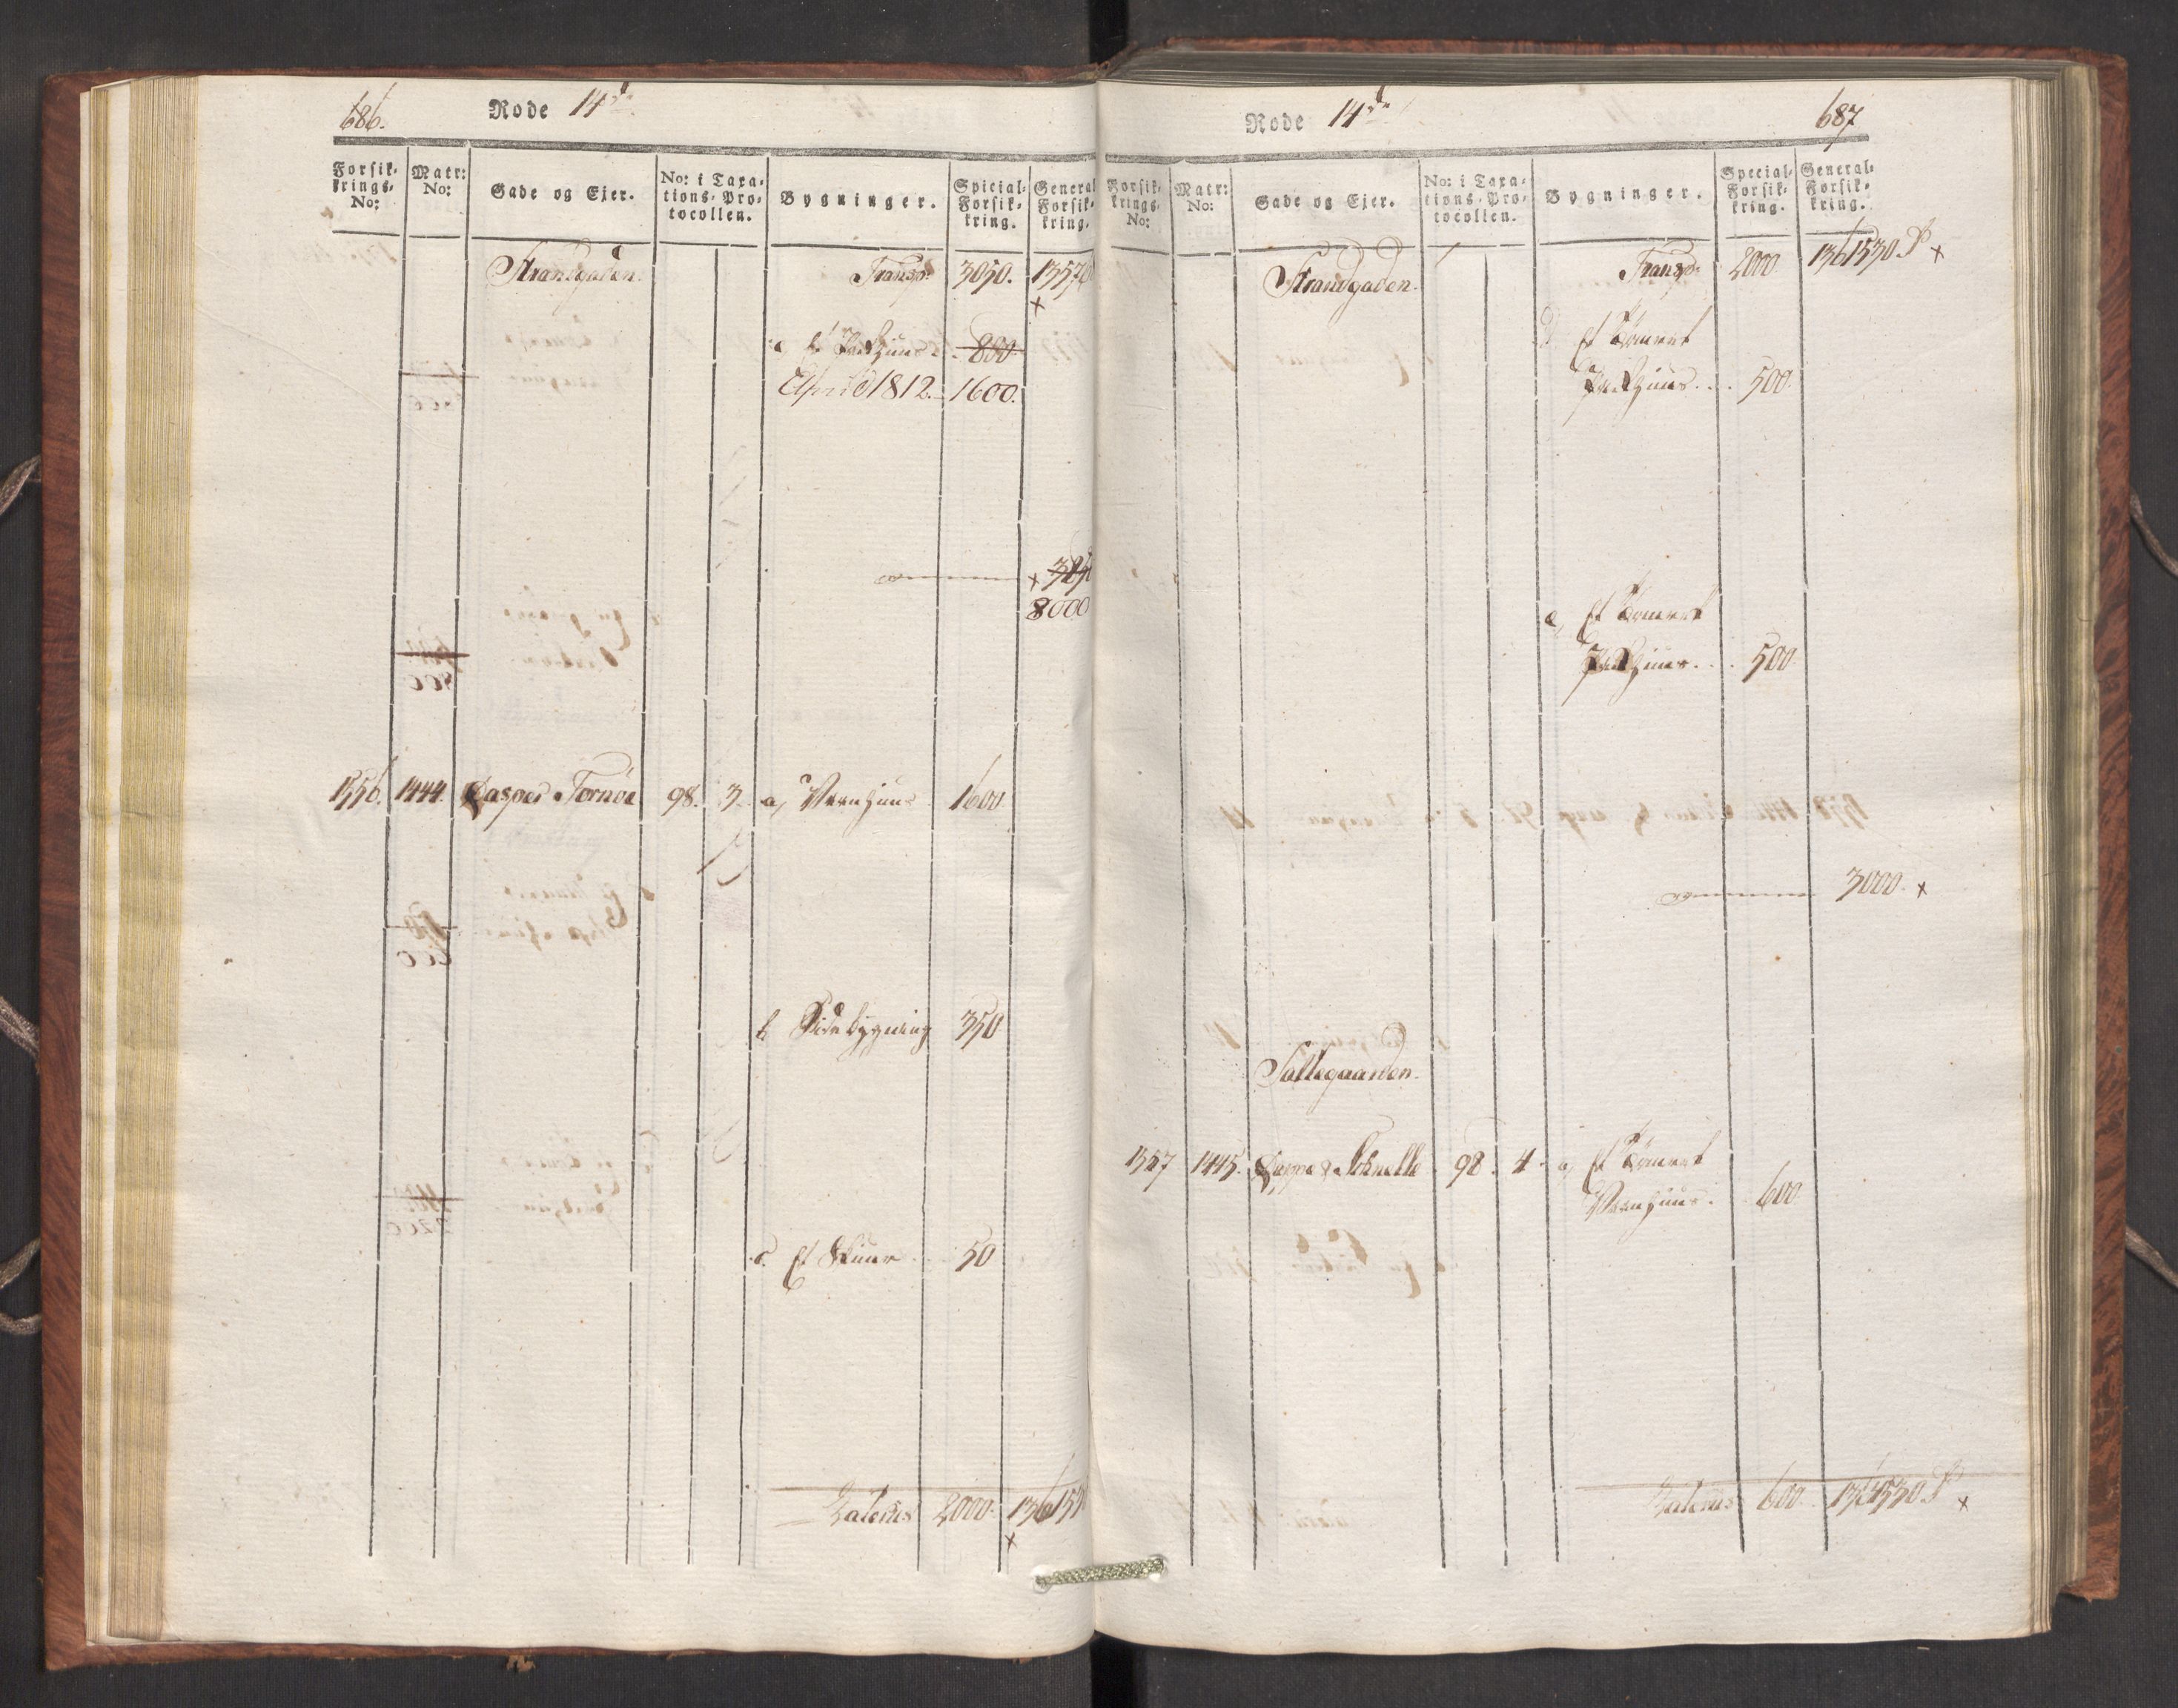 686.
Rode 14de
Forsik-
krings-
No:
Matr:
No:
Gade og Ejer.
No: i Taxa-
tions-Pro-
tocollen.
Bygninger.
Spicial-
Forsik-
kring.
General
Forsik-
kring.
Strandgaden. Transp: 3050. 1357
x
e Et Pakhuus 800
April 1812. 1600.
x
8000
1556. 1444. Casper Tornöe 98. 3. a, Vaanhuus 1600
b Sidebygning 350
c. Et Skuur 50
Lateris 2000. 136153
x
Rode 14de
687
Forsik-
krings-
No:
Matr:
No:
Gade og Ejer.
No: i Taxa-
tions-Pro-
tocollen.
Bygninger.
Special-
Forsik-
kring.
General-
Forsik-
kring.
Strandgaden. Transp: 2000 1361530 x
d Et Tömret
Pakhuus. 500.
e, Et Tömret
Pakhuus. 500
3000. x
1557 1445. Schnelle 98. 4. a, Et Tömret
Vaanhuus. 600
Lateris 600. 1364530 x